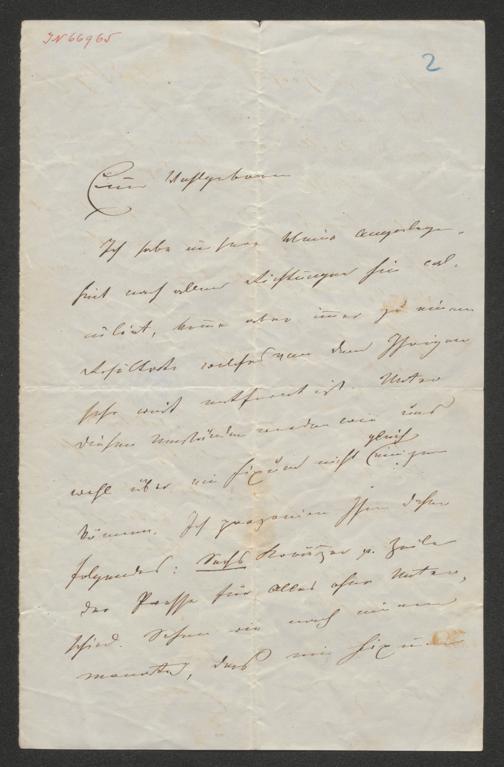 IN 66965
2
Euer Wohlgeboren
Ich habe unsere kleine Angelegen-
heit nach allen Richtungen hin cal-
culirt, komme aber immer zu einem
Resultate welches von dem Ihrigen
sehr weit entfernt ist. Unter
diesen Umständen werden wir uns
wohl über ein Fixum nicht gleich einigen
können. Ich proponire Ihnen daher
folgendes: Sechs Kreuzer p. Zeile
der Presse für alles ohne Unter-
schied. Sehen wir nach einem
Monate, daß ein Fixum